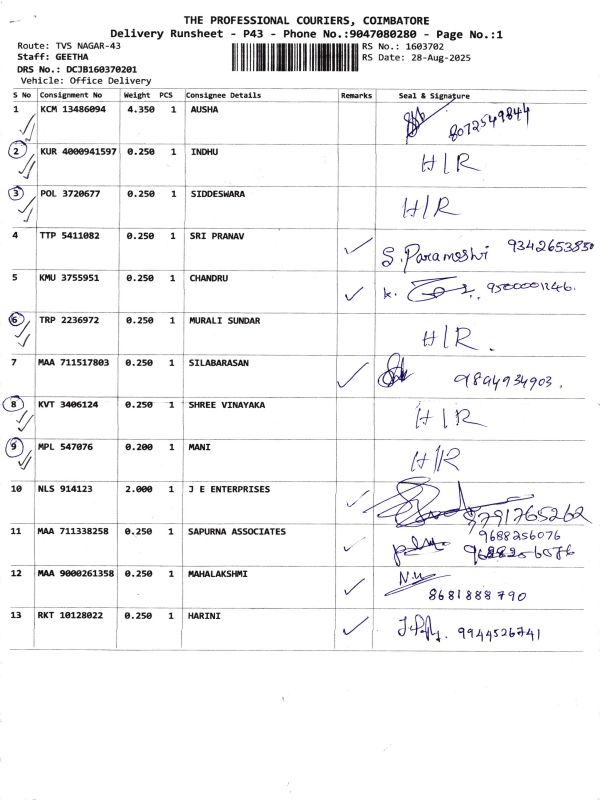 THE PROFESSIONAL COURIERS, COIMBATORE
Delivery Runsheet - P43 - Phone No.:9047080280 - Page No.:1
Route: TVS NAGAR-43 RS No.: 1603702
Staff: GEETHA RS Date: 28-Aug-2025
DRS No.: DCJB160370201
Vehicle: Office Delivery
S No Consignment No Weight PCS Consignee Details Remarks Seal & Signature
1 KCM 13486094 4.350 1 AUSHA 8072549844
2 KUR 4000941597 0.250 1 INDHU H/R
3 POL 3720677 0.250 1 SIDDESWARA H/R
4 TTP 5411082 0.250 1 SRI PRANAV ✓ S. Parameshvi 9342653850
5 KMU 3755951 0.250 1 CHANDRU ✓ k.
6 TRP 2236972 0.250 1 MURALI SUNDAR H/R.
7 MAA 711517803 0.250 1 SILABARASAN ✓ 9894934903.
8 KVT 3406124 0.250 1 SHREE VINAYAKA H/R
9 MPL 547076 0.200 1 MANI H/R
10 NLS 914123 2.000 1 J E ENTERPRISES ✓ 8791765262
11 MAA 711338258 0.250 1 SAPURNA ASSOCIATES ✓ 9688256076
12 MAA 9000261358 0.250 1 MAHALAKSHMI ✓ 8681888790
13 RKT 10128022 0.250 1 HARINI ✓ 9944526741